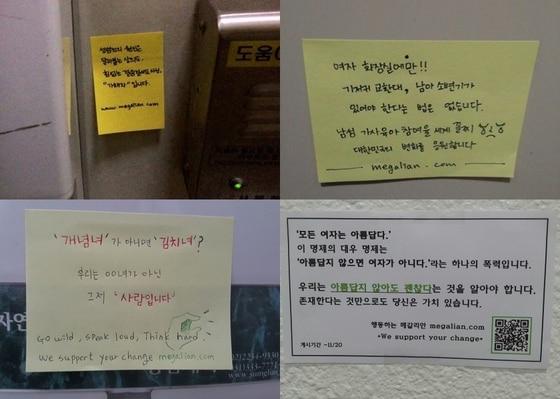 성범죄의 원인은
"가해자" 입니다.
www.megalian.com
도움
여자 화장실에만!!
기저귀 교환대, 남아 소변기가
있어야 한다는 법은 없습니다.
남성 가사육아 참여율 세계 꼴찌
대한민국의 변화를 응원합니다
megalian.com
'개념녀'가 아니면 '김치녀'?
우리는 00녀가 아닌
그저 "사람입니다"
Go wild, speak loud, Think hard.
We support your change megalian.com
자연
02)2234-9330
'모든 여자는 아름답다.'
이 명제의 대우 명제는
'아름답지 않으면 여자가 아니다.'라는 하나의 폭력입니다.
우리는 아름답지 않아도 괜찮다는 것을 알아야 합니다.
존재한다는 것만으로도 당신은 가치 있습니다.
행동하는 메갈리안 megalian.com
*We support your change*
게시기간 ~11/20